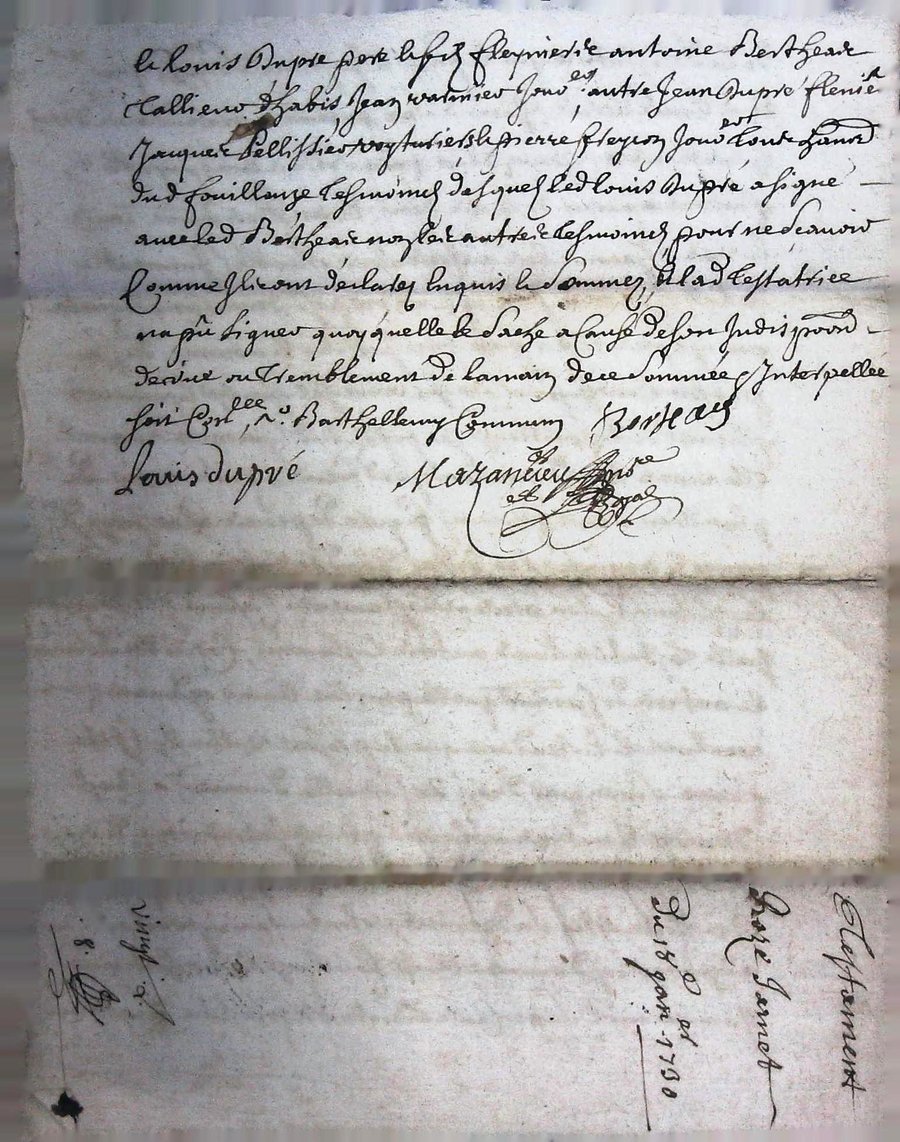 le louis Dupre pere le fils fleynieris antoine Bertheas
tallieur d'habis Jean warnier Jour.er autre Jean Dupré
Jacques Pellissier voyturiers & pierre freycon Jour.er tous
dud fouillouze tesmoins desquels led louis Dupré a signé
avec led Bertheas non les autres tesmoins pour ne scavoir
Comme Ils ont declarés Enquis & Sommés, Et lad testatrice
na pû signer quoy quelle le sache a Cause de son Indispoon
de tremblement de la main de ce sommée & Interpellée
soit Con.llee, Barthellemy Commun Bertheas
Louis dupré Mazancieu no.re
et Royal
Testament
Jarnet
Du 18e jan.er 1730
vingt
8.